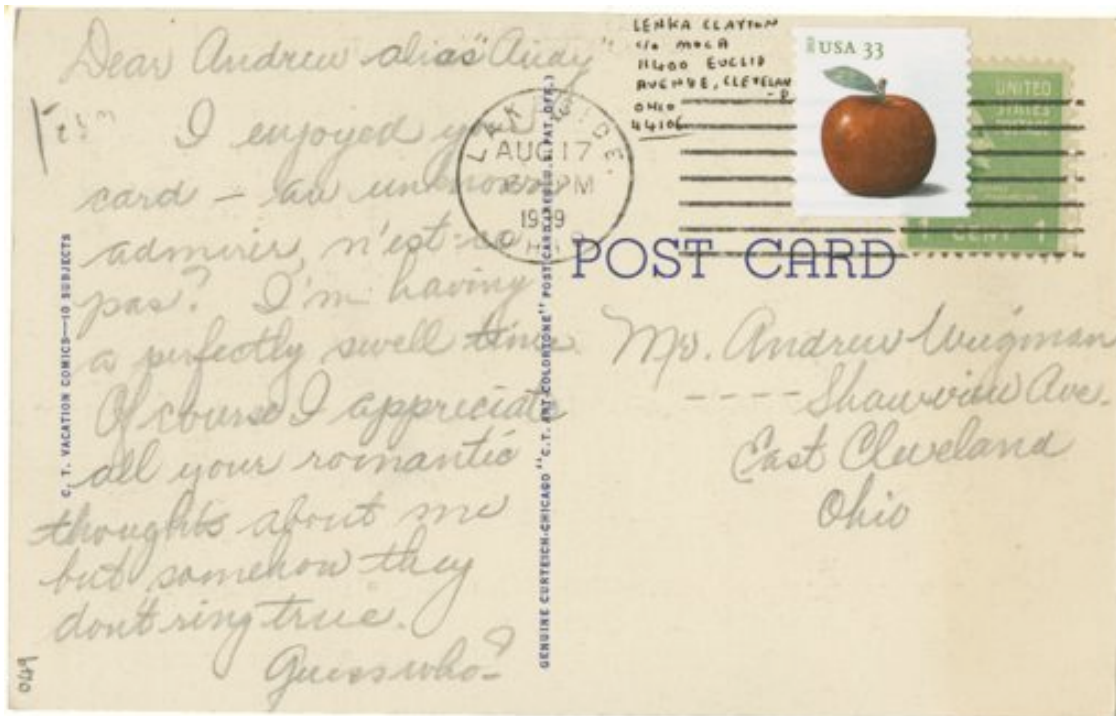 Dear Andrew alias "Andy"
I enjoyed your
card – an unknown
admirer, n'est-ce
pas? I'm having
a perfectly swell time.
Of course I appreciate
all your romantic
thoughts about me
but somehow they
don't ring true.
Guess who?
C. T. VACATION COMICS—10 SUBJECTS
GENUINE CURTEICH-CHICAGO "C.T. ART-COLORTONE" POST CARD (REG. U.S. PAT. OFF.)
LENKA CLAYTON
c/o MOCA
11400 EUCLID
AVENUE, CLEVELAN
-D
OHIO
44106
LAKESIDE,
AUG 17
PM
1939
OHIO
USA 33
UNITED
STATES
1 CENT 1
POST CARD
Mr. Andrew Wiegman
---- Shawview Ave.
East Cleveland
Ohio